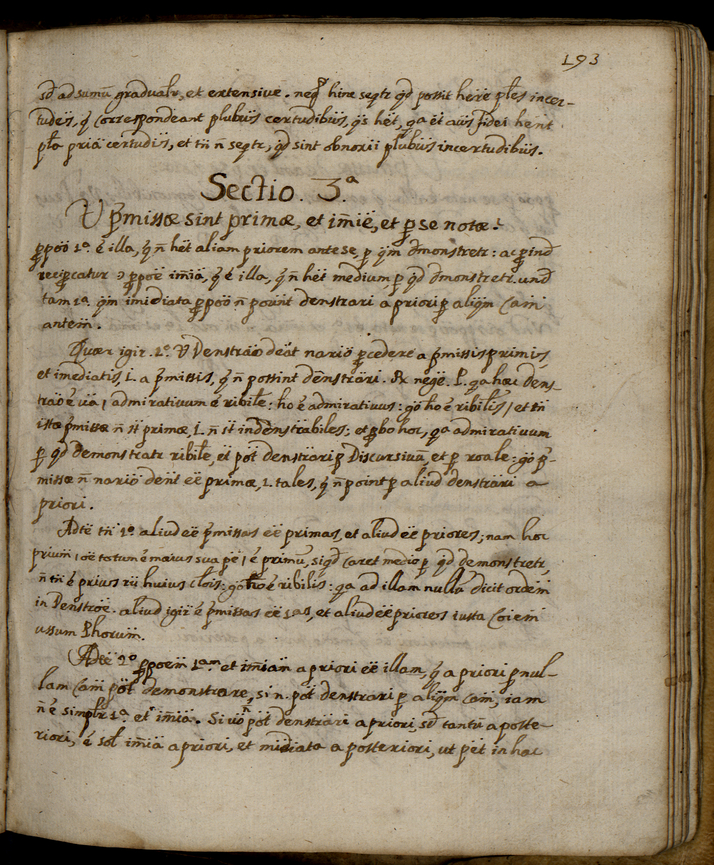 193
sd̄ ad sumū gradualr̄, et extensive. neq̄ hinc seqtr qd̄ possit hēre ptēs incer-
tudes, q̄ Correspondeant plubus certudibus, q̄s hēt, qa ēi aūs fidei hēnt
pta priā certudīs, et tn̄ n̄ seqtr, qd̄ sint obnoxii plubus incertudibus.
Sectio. 3.ª
V p̄missæ sint primæ, et im̄iē, et p se notæ?
p̄poō 1ª ē illa, q̄ n̄ hēt aliam priorem ante se, p qm̄ dmonstretr: ac p̄ind
recip̄catur p̄poē im̄iā, q̄ ē illa, q̄ n̄ hēt medium, p qd̄ dmonstretr. und
tam 1ª qm̄ imediata p̄poō n̄ poūnt denstrari a priori p aliqm̄ Cam̄
antem̄.
Quær igir. 1º V Denstraō deāt nariō p̄cedere a p̄missis primis,
et imediatis, l. a p̄missis, q̄ n̄ possint denstrāri. Rx negē. P. qa hæc dens-
traō ē vīa / admirativum ē ribile: hō ē admirativus: gō hō ē ribilis / et tn̄
istæ p̄missæ n̄ st̄ primæ, l. n̄ st̄ indenstrabiles; et p̄bo hoc, qa admirativum
p qd̄ demonstratr ribile, et pōt denstrari p Discursivū, et p roāle: gō p̄-
missæ n̄ nariō dent̄ eē primæ, l. tales, q̄ n̄ point p aliud denstrāri a
priori.
Adtē tn̄ 1º aliud eē p̄missas eē primas, et aliud eē priores; nam hoc
prium̄ / oē totum ē maius sua pē / ē primū, siqd̄ caret medio p qd̄ demonstretr,
n̄ tn̄ ē prius rīs huius Clōis: gō hō ē ribilis: qa ad illam nullā dicit ordēm
in Denstroē. aliud igir ē p̄missas eē 1as, et aliud eē priores iuxta Coiem
ussum Phorum̄.
Adtē 2º p̄poem̄ 1am et im̄iam a priori eē illam, q̄ a priori p nul-
lam Cam̄ pōt demonstrare, si n. pōt denstrari p aliqm̄ Cam̄, iam
n̄ ē simplr 1ª. et im̄iā. Si vō n̄ pōt denstrāri a priori, sd̄ tantū a poste-
riori, ē sol im̄iā a priori, et midiata a posteriori, ut pet in hac